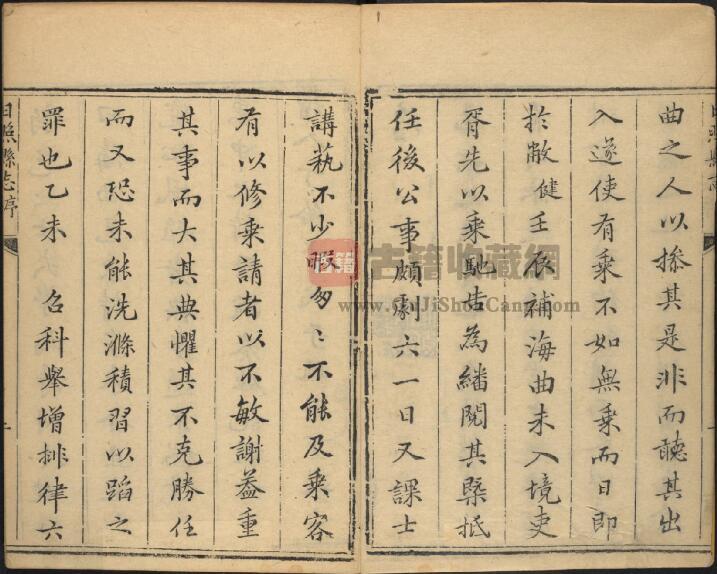 曲之人以掺其是非而聽其出
入遂使有乘不如無乘而日即
扵敝健壬辰補海曲未入境吏
胥先以乘馳告為繙閱其槩抵
任後公事頗劇六一日又課士
講萟不少暇匆〻不能及乘客
有以修乘請者以不敏謝葢重
其事而大其典懼其不克勝任
而又恐未能洗滌積習以蹈之
罪也乙未 召科舉增排律六
日照縣志序
古籍收藏網
www.GuJiShouCang.com